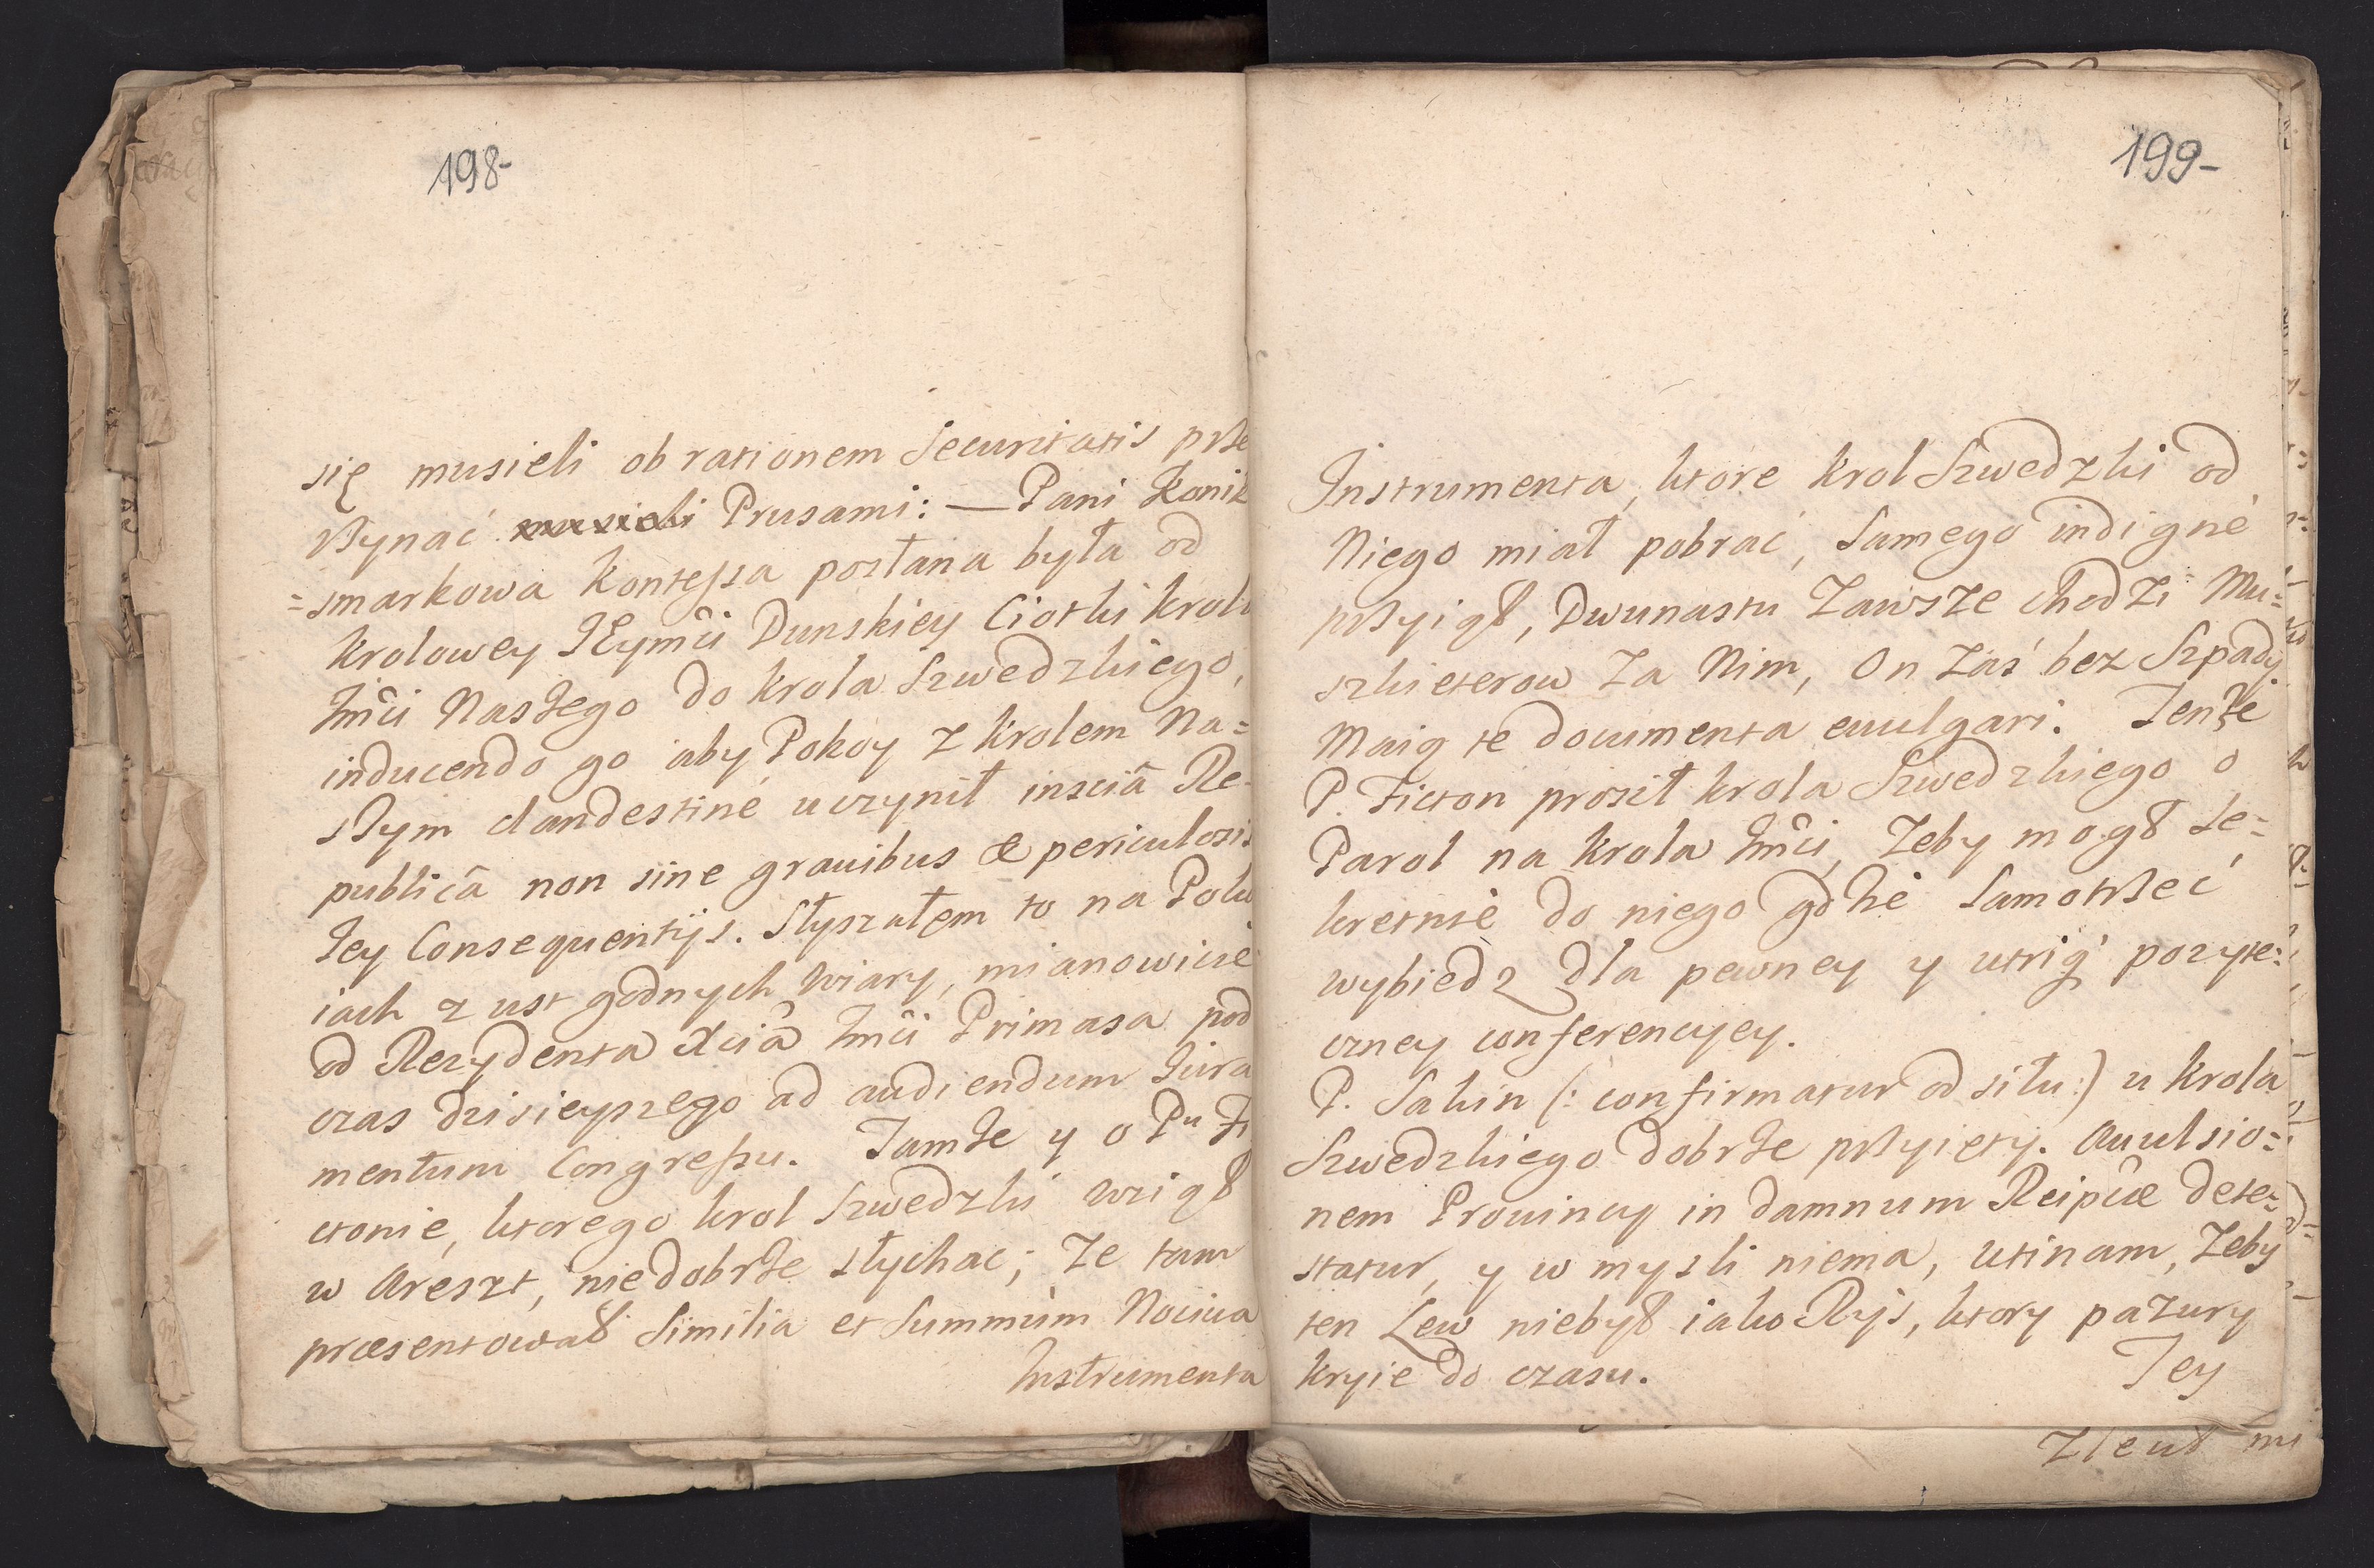 198-
się musieli ob rationem Securitatis prze
rzynać musieli Prusami: — Pani Konik
=smarkowa Kontessa posłana była od
krolowey JEymci Dunskiey Ciotki krola
Jmci Naszego do krola Szwedzkiego,
inducendo go aby Pokoy z krolem Na=
szym clandestiné uczynił insciâ Re-
publicâ non sine grauibus & periculosis
Jey Consequentijs. Słyszałem to na Poko
iach z ust godnych wiary, mianowicie
od Rezydenta Xcia Jmci Primasa pod
czas dzisieyszego ad audiendum Jura
mentum Congressu. Tamże y o Pu Fi
ctonie, ktorego krol Szwedzki wziął
w Areszt, niedobrze słychac; że tam
præsentował Similia et Summum Nociua
Instrumenta
199-
Instrumenta, ktore krol Szwedzki od
Niego miał pobrać, Samego indigné
przyiął, Dwunastu zawsze chodzi Mu=
szkieterow za Nim, On zaś bez Szpady
Maią te documenta euulgari. Tenże
P. Ficton prosił krola Szwedzkiego o
Parol na krola Jmci, żeby mogł se=
kretnie do niego gdzie Samotrzeć
wybiedz dla pewney y utrią pozyte=
czney conferencyey.
P. Sakin (: confirmatur od siłu:) u krola
Szwedzkiego dobrze przyięty. Auulsio=
nem Prouincy in damnum Reipcæ dete=
statur, y w mysli niema, utinam, żeby
ten Lew niebył iako Ryś, ktory pazury
kryie do czasu.
Jey